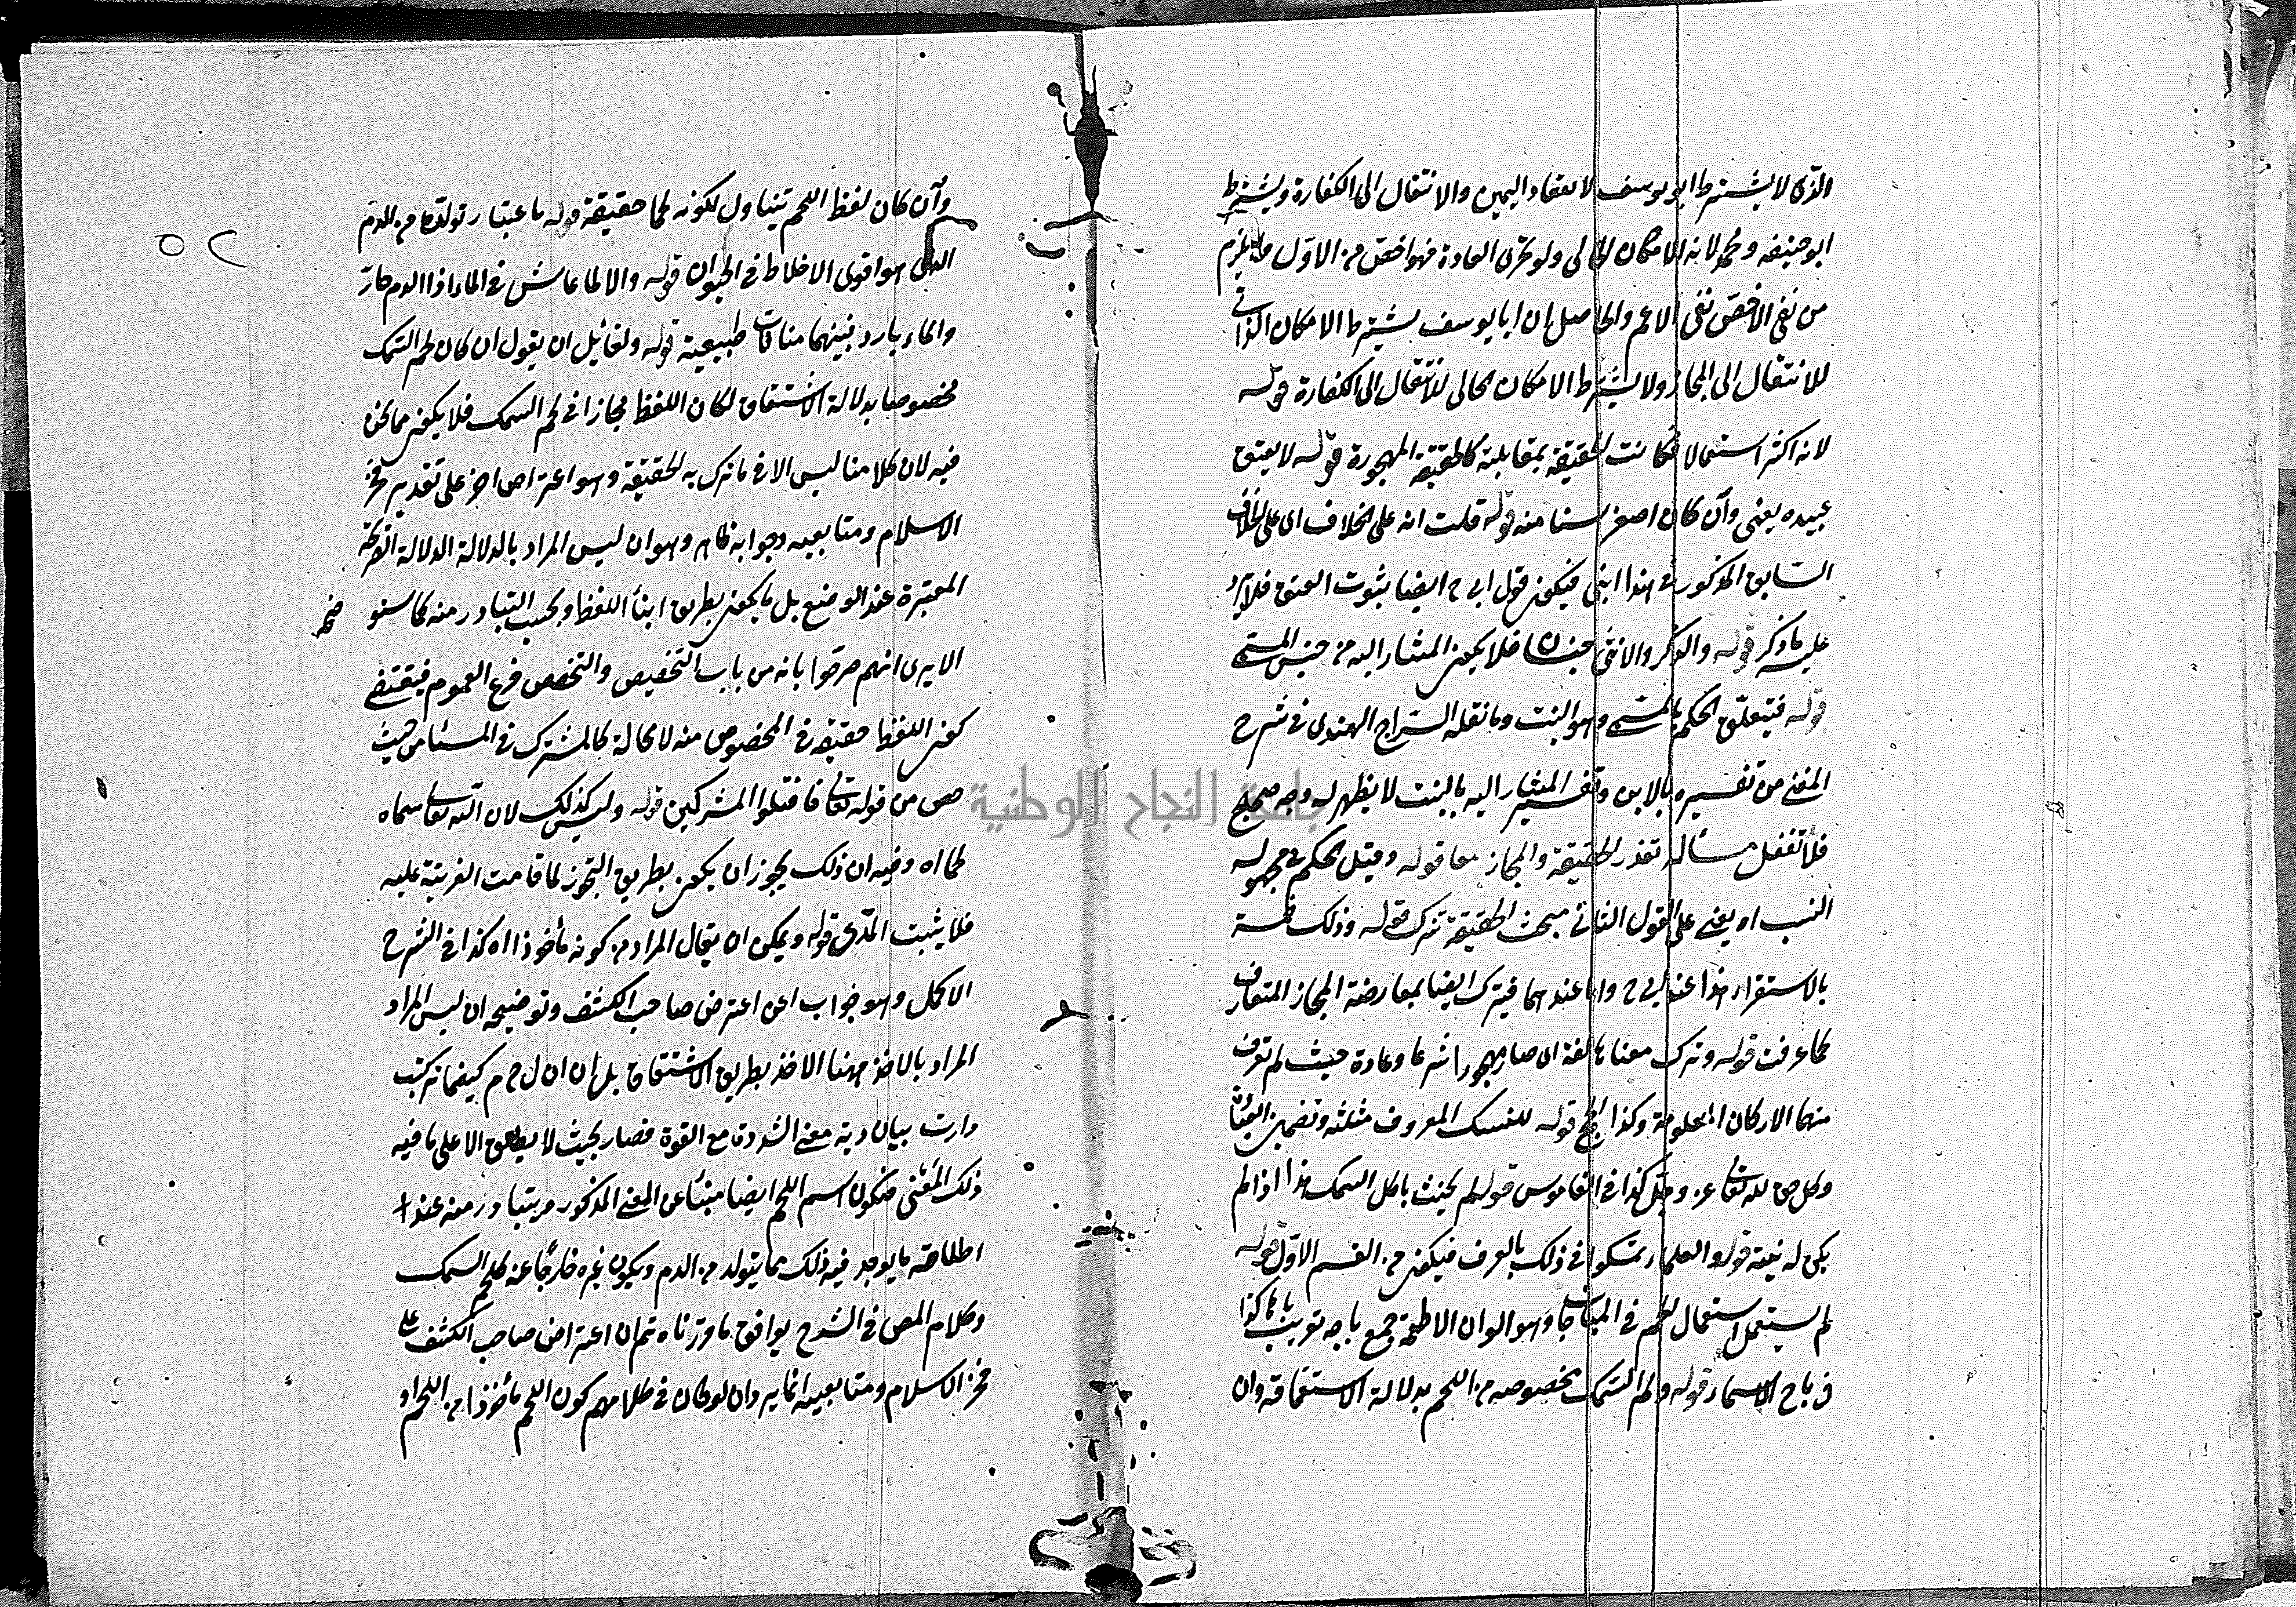 الذى لا يشترط ابو يوسف لانعقاد اليمين والانتقال الى الكفارة ويشترط
ابو حنيفه ومحمد لانه الامكان الحالى ولو بخرق العادة فهو اخص من الاول ولا يلزم
من نفى الاخص نفى الاعم والحاصل ان ابا يوسف يشترط الامكان الذاتى
للانتقال الى المجاز ولا يشترط الامكان الحالى للانتقال الى الكفارة قوله
لانه اكثر استعمالا فكانت الحقيقة بمقابلته كالحقيقة المهجورة قوله لا يعتق
عبيده يعنى وان كان اصغر سنا منه قوله قلت انه على الخلاف اى على الخلاف
السابق المذكور فى هذا ابنى فيكون قول ابى ح ايضا بثبوت العتق فلا يرد
عليه ما ذكر قوله والذكر والانثى جنسان فلا يكون المشار اليه من جنس المسمى
قوله فيتعلق الحكم بالمسمى وهو البنت وما نقله السراج الهندى فى شرح
المغنى من تفسيره بالابن وتفسير المشار اليه بالبنت لا يظهر له وجه صحيح
فلا تغفل مسألة تعذر الحقيقة والمجاز معا قوله وقيل الحكم فى مجهولة
النسب اه يعنى على القول الثانى مبحث الحقيقة تترك قوله وذلك خمسة
بالاستقراء هذا عند ابى ح واما عندهما فيترك ايضا بمعارضة المجاز المتعارف
كما عرفت قوله وترك معناها لغة اى صار مهجورا شرعا وعادة حيث لم تعرف
منها الاركان المعلومة وكذا الحج قوله للنسك المعروف مثلثة وبضمتين
وكل حق لله تعالى عز وجل كذا فى القاموس قوله لم يحنث باكل السمك هذا اذا لم
يكن له نية قوله والعلماء تمسكوا فى ذلك بالعرف فيكون من القسم الاول قوله
لم يستعمل استعمال اللحم فى وهو الوان الاطعمة جمع باجه تعريب باها كذا
فى الاسماء قوله ولحم السمك مخصوصه من اللحم بدلالة الاشتقاق وان
وان كان لفظ اللحم تتناول لكونه لحما حقيقة قوله باعتبار تولده من الدم
الذى هو اقوى الاخلاط فى الحيوان قوله والا لما عاش فى الماء اذ الدم حار
والماء بارد فبينهما منافات طبيعية قوله ولقائل ان يقول ان كان لحم السمك
مخصوصا بدلالة الاشتقاق لكان اللفظ مجازا فى لحم السمك فلا يكون مما نحن
فيه لان كلامنا ليس الا فى ما ترك به الحقيقة وهو اعتراض اخر على تقدير فخر
الاسلام ومتابعيه وجوابه ظاهر وهو ان ليس المراد بالدلالة الدلالة الصريحة
المعتبرة عند الوضع بل ما يكون بطريق ابناء اللفظ وبحسب التبادر منه كما سنو
ضحه
الا يرى انهم صرحوا بانه من باب التخصيص والتخصص فرع العموم فيقتضى
كون اللفظ حقيقة فى المخصوص منه لا محالة كالمشترك فى المستأمن حيث
خص من قوله تعالى فاقتلوا المشركين قوله وليس كذلك لان الله تعالى سماه
لحما اه وفيه ان ذلك يجوز ان يكون بطريق التجوز لما قامت القرينة عليه
فلا يثبت المدعى قوله ويمكن ان يقال المراد من كونه مأخوذا اه كذا فى الشرح
الاكمل وهو جواب اعن اعتراض صاحب الكشف وتوضيحه ان ليس المراد
المراد بالاخذ ههنا الاخذ بطريق الاشتقاق بل ان ان ل ح م كيفما تركبت
دارت بيان دية معنى الشدة مع القوة فصار بحيث لا يطلق الا على ما فيه
ذلك المعنى فيكون اسم اللحم ايضا منبئا عن المعنى المذكور ويتبادر منه عند ا
اطلاقه ما يوجد فيه ذلك مما يتولد من الدم ويكون غيره خارجا عنه كلحم السمك
وكلام المص فى الشرح يوافق ما قررناه ثم ان اعتراض صاحب الكشف على
فخر الاسلام ومتابعيه انما يرد ان لو كان فى كلامهم كون اللحم مأخوذا من اللحم او
جامعة النجاح الوطنية